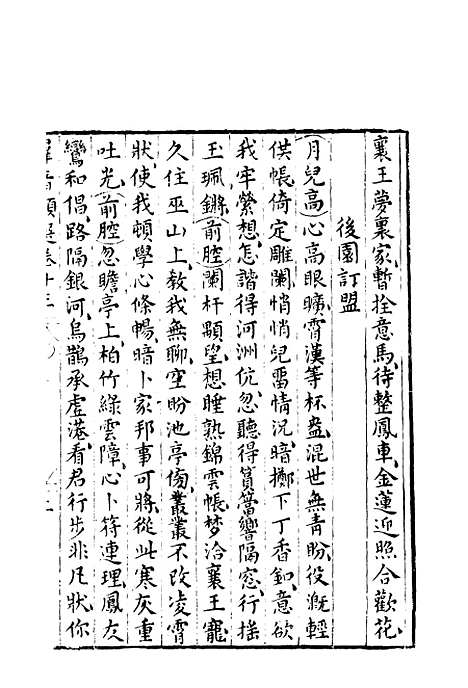 襄王夢裏家暫拴意馬待整鳳車金蓮迎照合歡花
後園訂盟
月兒高心高眼曠霄漢等杯盎混世無青盼役溉輕
供帳倚定雕闌悄悄兒畱情況暗擲下丁香釦意欲
我牢縈想怎諧得河洲伉忽聽得篔簹響隔窓行揺
玉珮鏘前腔闌杆顒望想睡熟錦雲帳夢洽襄王寵
久住巫山上教我無聊空盼池亭傍叢叢不改凌霄
狀使我頓學心條暢暗卜家邦事可將從此寒灰重
吐光前腔忽瞻亭上柏竹綠雲障心卜符連理鳳友
鸞和倡路隔銀河烏鵲承虚港看君行步非凡狀你
卷十三